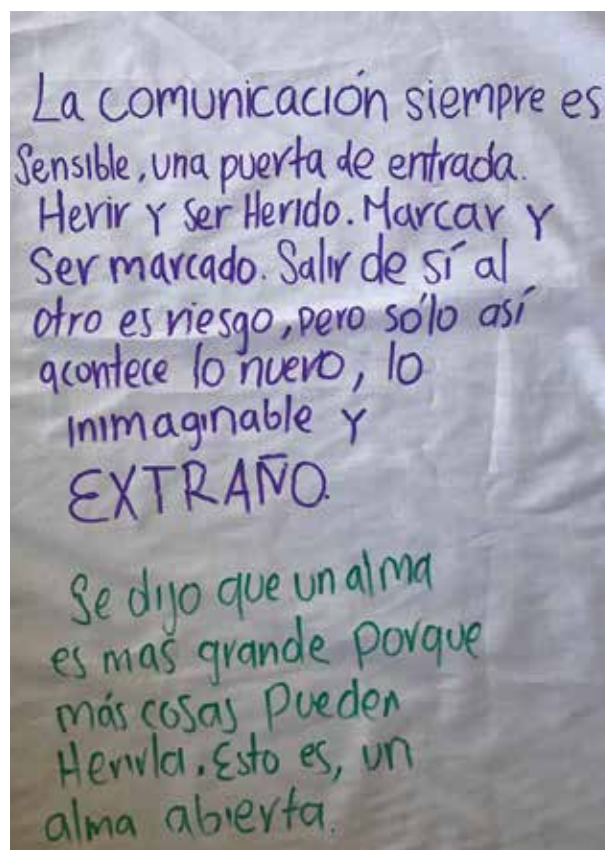 La comunicación siempre es
sensible, una puerta de entrada.
Herir y ser Herido. Marcar y
ser marcado. Salir de sí al
otro es riesgo, pero sólo así
acontece lo nuevo, lo
inimaginable y
EXTRAÑO.
Se dijo que un alma
es más grande porque
más cosas pueden
Herirla. Esto es, un
alma abierta.